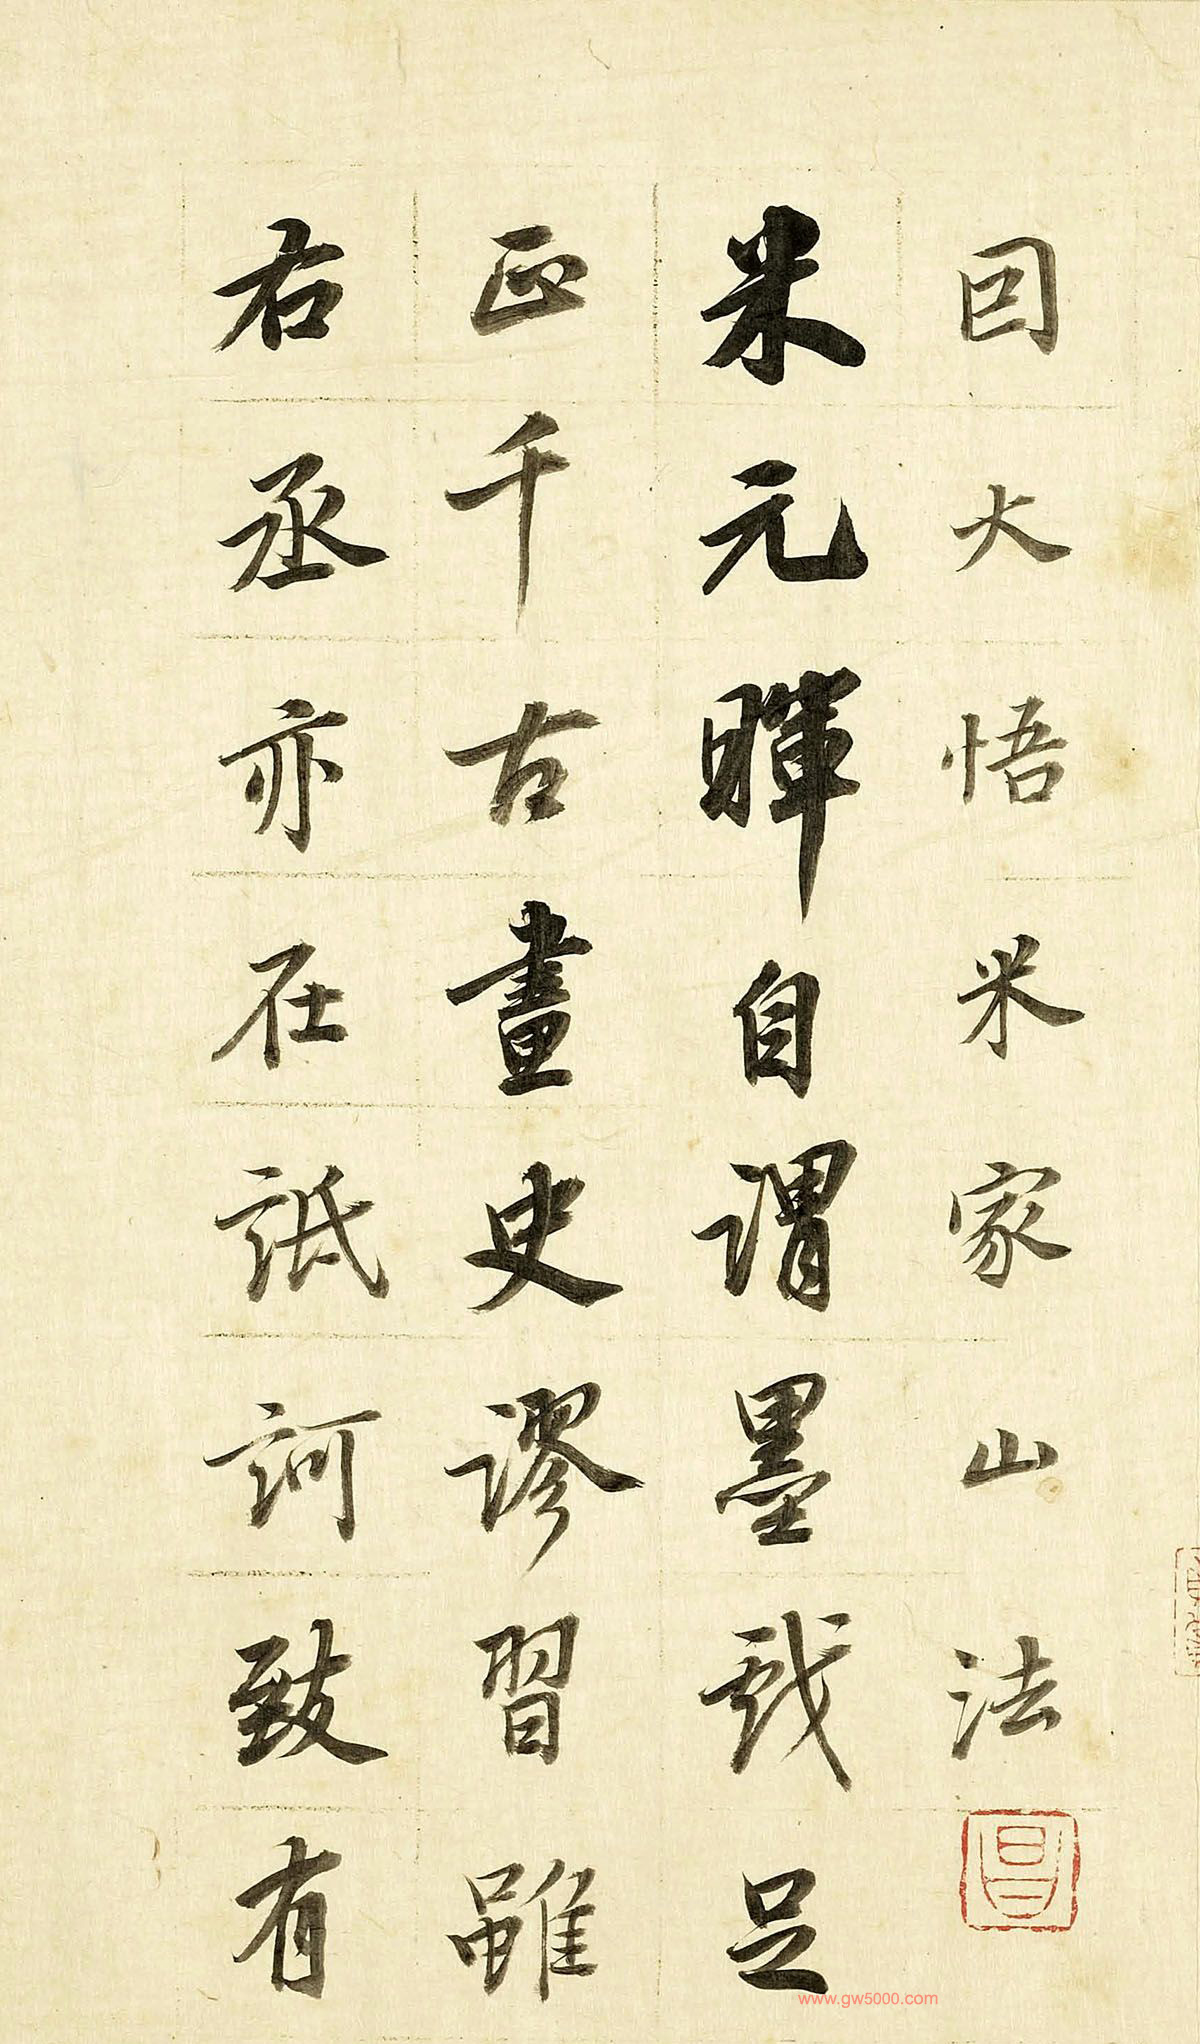 因大悟米家山法
米元暉自謂墨戲足
正千古畫史謬習雖
右丞亦在詆訶致有
昌
www.gw5000.com